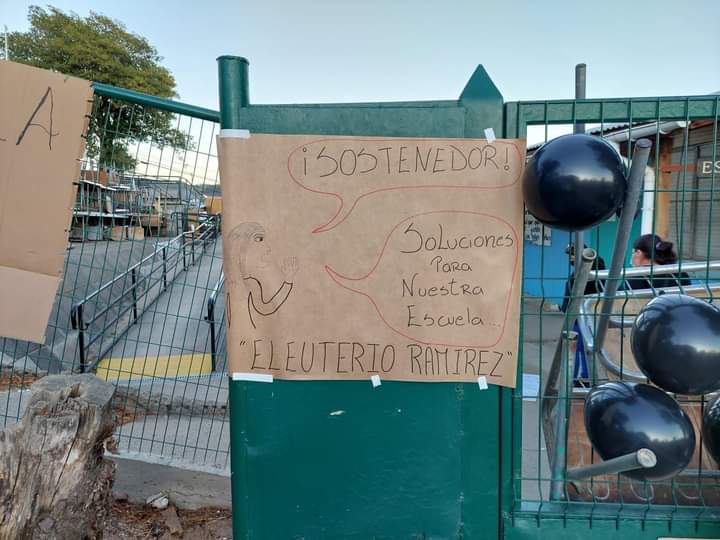 LA
¡SOSTENEDOR!
Soluciones
Para
Nuestra
Escuela...
"ELEUTERIO RAMIREZ"
ES